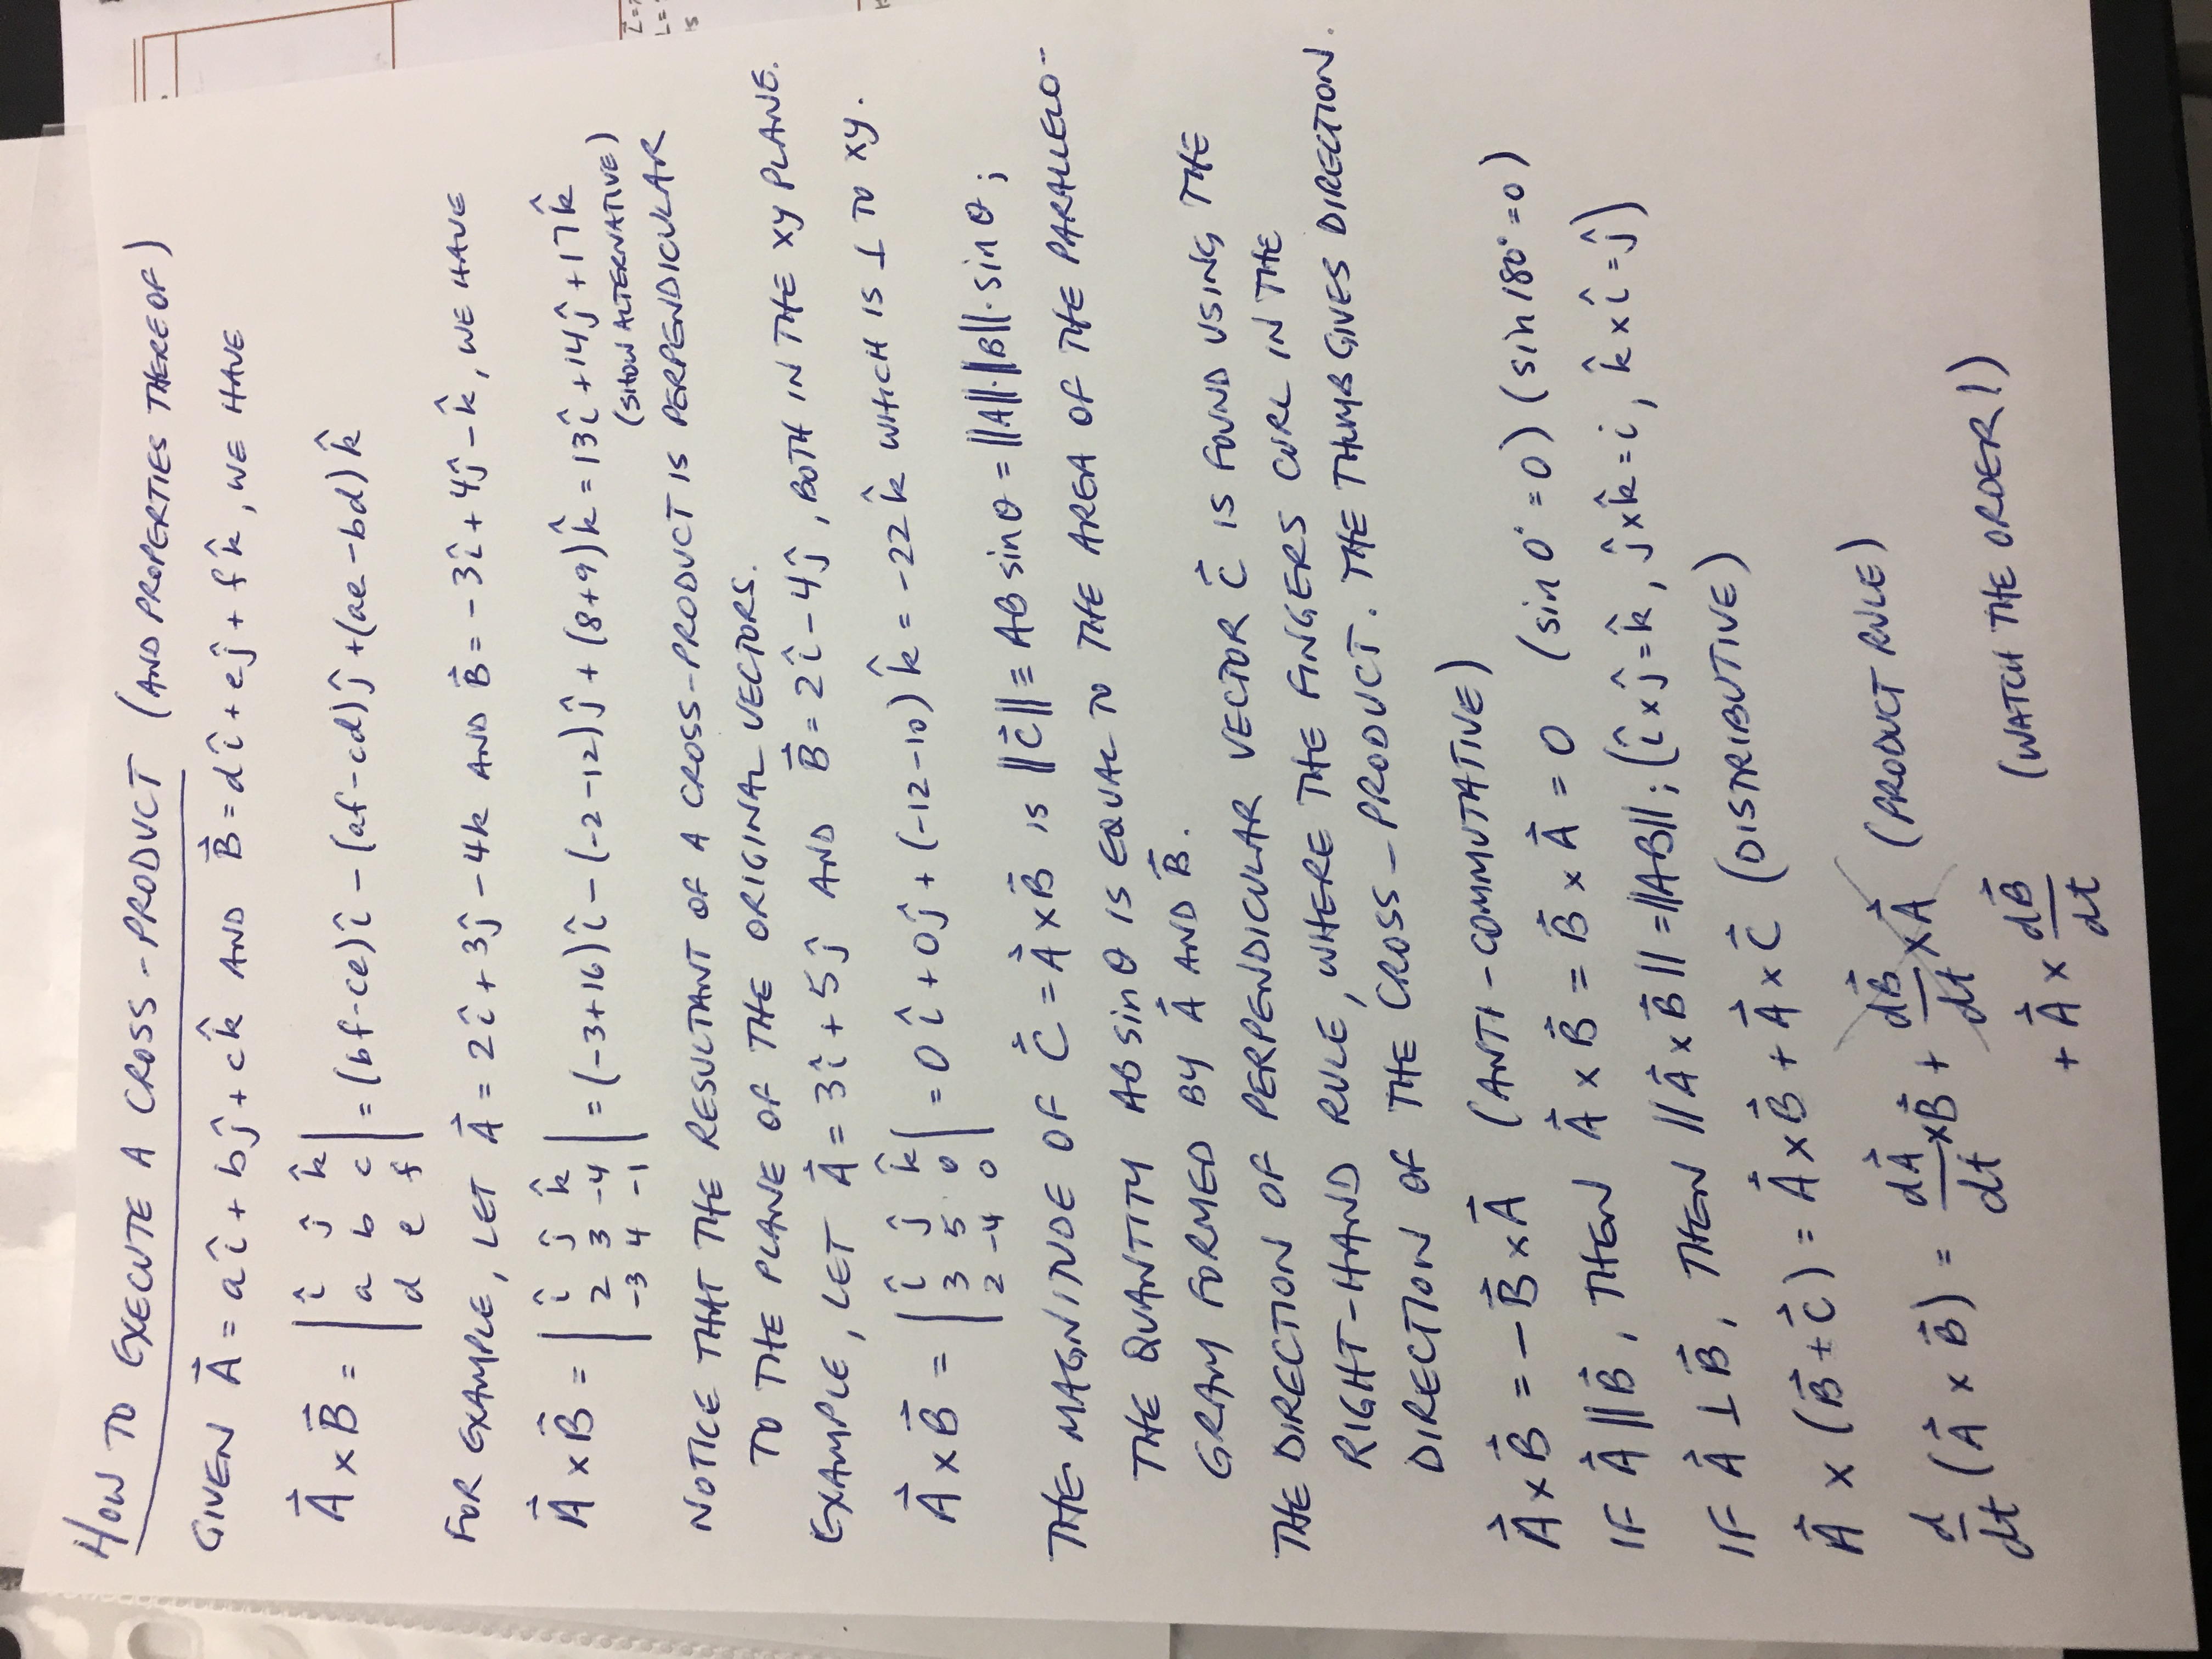 HOW TO EXECUTE A CROSS-PRODUCT (AND PROPERTIES THEREOF)
GIVEN A⃗ = aî + bĵ + ck̂ AND B⃗ = dî + eĵ + fk̂, WE HAVE
A⃗ × B⃗ = | î ĵ k̂ | = (bf-ce)î - (af-cd)ĵ + (ae-bd)k̂
a b c
d e f
FOR EXAMPLE, LET A⃗ = 2î + 3ĵ - 4k AND B⃗ = -3î + 4ĵ - k̂, WE HAVE
A⃗ × B⃗ = | î ĵ k̂ | = (-3+16)î - (-2-12)ĵ + (8+9)k̂ = 13î + 14ĵ + 17k̂
2 3 -4
-3 4 -1
(SHOW ALTERNATIVE)
NOTICE THAT THE RESULTANT OF A CROSS-PRODUCT IS PERPENDICULAR
TO THE PLANE OF THE ORIGINAL VECTORS.
EXAMPLE, LET A⃗ = 3î + 5ĵ AND B⃗ = 2î - 4ĵ, BOTH IN THE XY PLANE.
A⃗ × B⃗ = | î ĵ k̂ | = 0î + 0ĵ + (-12-10)k̂ = -22k̂ WHICH IS ⊥ TO XY.
3 5 0
2 -4 0
THE MAGNITUDE OF C⃗ = A⃗ × B⃗ IS ||C⃗|| ≡ AB sinθ = ||A||·||B||·sinθ;
THE QUANTITY AB sinθ IS EQUAL TO THE AREA OF THE PARALLELO-
GRAM FORMED BY A⃗ AND B⃗.
THE DIRECTION OF PERPENDICULAR VECTOR C⃗ IS FOUND USING THE
RIGHT-HAND RULE, WHERE THE FINGERS CURL IN THE
DIRECTION OF THE CROSS-PRODUCT. THE THUMB GIVES DIRECTION.
A⃗ × B⃗ = -B⃗ × A⃗ (ANTI-COMMUTATIVE)
IF A⃗ || B⃗, THEN A⃗ × B⃗ = B⃗ × A⃗ = 0 (sin 0° = 0) (sin 180° = 0)
IF A⃗ ⊥ B⃗, THEN ||A⃗ × B⃗|| = ||AB||; (î × ĵ = k̂, ĵ × k̂ = i, k̂ × î = ĵ)
A⃗ × (B⃗ + C⃗) = A⃗ × B⃗ + A⃗ × C⃗ (DISTRIBUTIVE)
d/dt (A⃗ × B⃗) = dA⃗/dt × B⃗ + dB⃗/dt × A⃗ (PRODUCT RULE)
+ A⃗ × dB⃗/dt (WATCH THE ORDER!)